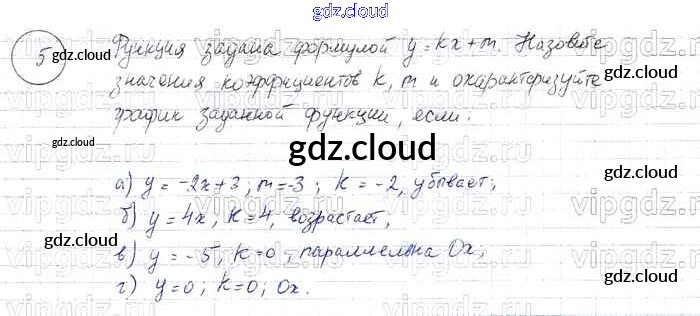 gdz.cloud
5 Функция задана формулой y = kx + m. Назовите
значения коэффициентов k, m и охарактеризуйте
график заданной функции, если:
gdz.cloud
gdz.cloud
gdz.cloud
gdz.cloud
gdz.cloud
а) y = -2x+3, m=-3; k = -2, убывает;
б) y = 4x, k=4, возрастает,
в) y = -5, k=0, параллельна Ox;
г) y=0; k=0; Ox.
gdz.cloud
gdz.cloud
gdz.cloud
gdz.cloud